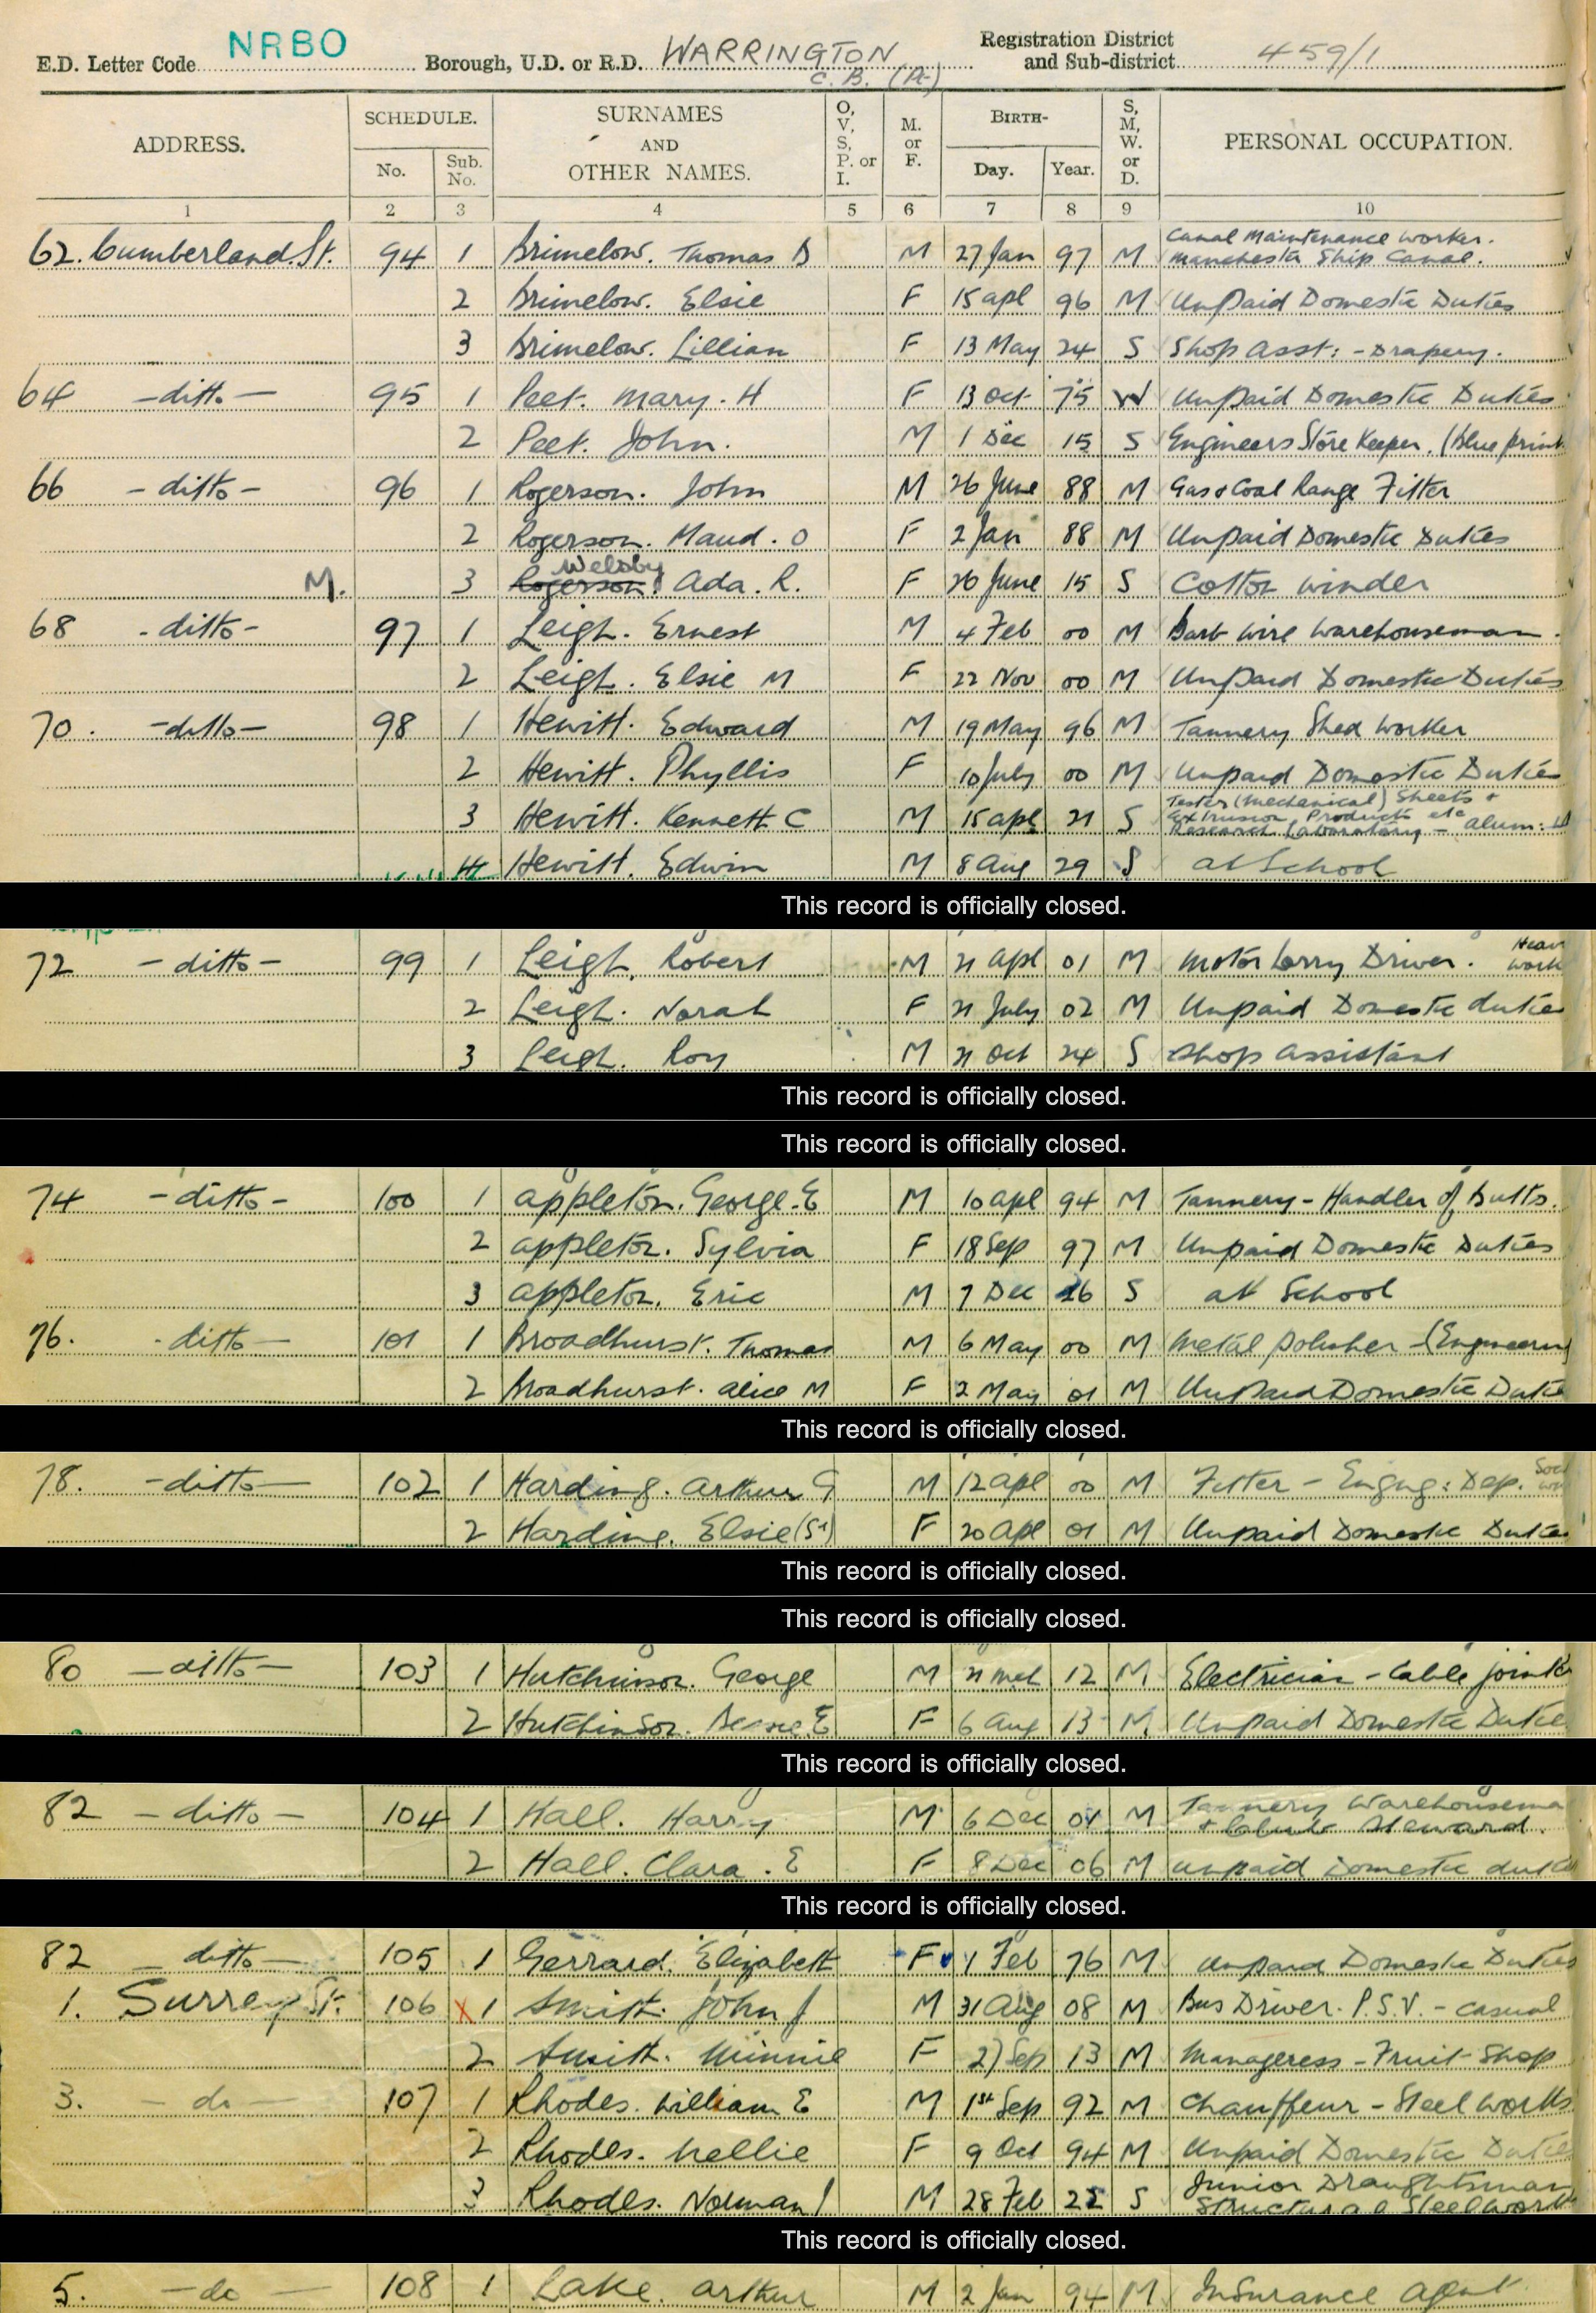 E.D. Letter Code NRBO Borough, U.D. or R.D. WARRINGTON C.B. (A) Registration District and Sub-district 459/1
ADDRESS. SCHEDULE. No. Sub. No. SURNAMES AND OTHER NAMES. O, V, S, P. or I. M. or F. BIRTH- Day. Year. S, M, W. or D. PERSONAL OCCUPATION.
1 2 3 4 5 6 7 8 9 10
62. Cumberland St. 94 1 Brimelow. Thomas B M 27 Jan 97 M Canal Maintenance Worker. Manchester Ship Canal.
2 Brimelow. Elsie F 15 apl 96 M Unpaid Domestic Duties
3 Brimelow. Lillian F 13 May 24 S Shop Asst: - Drapery.
64 -ditto- 95 1 Peet. Mary. H F 13 Oct 75 W Unpaid Domestic Duties
2 Peet. John. M 1 Dec 15 S Engineers Store Keeper. (Blue print
66 -ditto- 96 1 Rogerson. John M 26 June 88 M Gas & Coal Range Fitter
2 Rogerson. Maud. O F 2 Jan 88 M Unpaid Domestic Duties
Welsby
M. 3 Rogerson. Ada. R. F 26 June 15 S Cotton Winder
68 -ditto- 97 1 Leigh. Ernest M 4 Feb 00 M Barb Wire Warehouseman.
2 Leigh. Elsie M F 22 Nov 00 M Unpaid Domestic Duties
70. -ditto- 98 1 Hewitt. Edward M 19 May 96 M Tannery Shed Worker
2 Hewitt. Phyllis F 10 July 00 M Unpaid Domestic Duties
3 Hewitt. Kenneth C M 15 apl 21 S Tester (Mechanical) Sheets & Extrusion Products etc Research Laboratory - alum:
4 Hewitt. Edwin M 8 Aug 29 S at School
This record is officially closed.
72 -ditto- 99 1 Leigh. Robert M 21 apl 01 M Motor Lorry Driver. Heavy work
2 Leigh. Norah F 21 July 02 M Unpaid Domestic duties
3 Leigh. Roy M 21 Oct 24 S Shop assistant
This record is officially closed.
This record is officially closed.
74 -ditto- 100 1 Appleton. George. E M 10 apl 94 M Tannery - Handler of Butts.
2 Appleton. Sylvia F 18 Sep 97 M Unpaid Domestic Duties
3 Appleton. Eric M 7 Dec 26 S at School
76. -ditto- 101 1 Broadhurst. Thomas M 6 May 00 M Metal polisher - (Engineering
2 Broadhurst. Alice M F 2 May 01 M Unpaid Domestic Duties
This record is officially closed.
78. -ditto- 102 1 Harding. Arthur G M 12 apl 00 M Fitter - Engng: Dep.
2 Harding. Elsie (Sr) F 20 apl 01 M Unpaid Domestic Duties
This record is officially closed.
This record is officially closed.
80 -ditto- 103 1 Hutchinson. George M 21 Mch 12 M Electrician - Cable jointer
2 Hutchinson. Bessie. E F 6 Aug 13 M Unpaid Domestic Duties
This record is officially closed.
82 -ditto- 104 1 Hall. Harry M 6 Dec 01 M Tannery Warehouseman & Club Steward.
2 Hall. Clara. E F 8 Dec 06 M unpaid domestic duties
This record is officially closed.
82 -ditto- 105 1 Gerrard. Elizabeth F 1 Feb 76 M Unpaid Domestic Duties
1. Surrey St. 106 X 1 Smith. John J M 31 Aug 08 M Bus Driver. P.S.V. - casual
2 Smith. Minnie F 27 Sep 13 M Manageress - Fruit Shop
3. -do- 107 1 Rhodes. William E M 1st Sep 92 M Chauffeur - Steel Works
2 Rhodes. Nellie F 9 Oct 94 M Unpaid Domestic Duties
3 Rhodes. Norman J M 28 Feb 22 S Junior Draughtsman Structural Steelwork
This record is officially closed.
5. -do- 108 1 Lake. Arthur M 2 Jan 94 M Insurance Agent